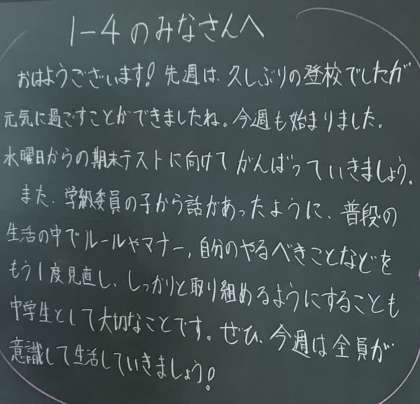 1-4のみなさんへ
おはようございます!先週は、久しぶりの登校でしたが
元気に過ごすことができましたね。今週も始まりました。
水曜日からの期末テストに向けてがんばっていきましょう。
また、学級委員の子から話があったように、普段の
生活の中でルールやマナー,自分のやるべきことなどを
もう1度見直し、しっかりと取り組めるようにすることも
中学生として大切なことです。ぜひ、今週は全員が
意識して生活していきましょう!